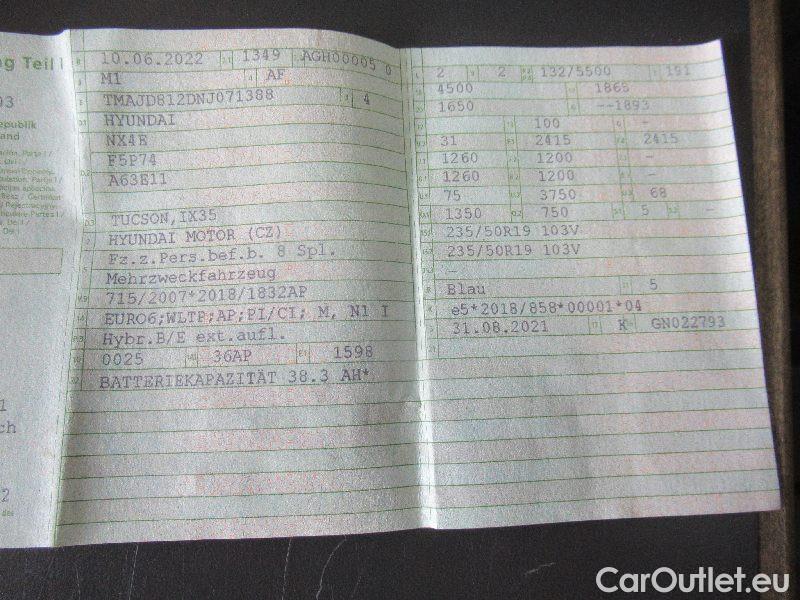 ng Teil I
93
epublik
and
10.06.2022 1349 AGH00005 0
M1 AF
TMAJD812DNJ071388 4
HYUNDAI
NX4E
F5P74
A63E11
TUCSON,IX35
HYUNDAI MOTOR (CZ)
Fz.z.Pers.bef.b. 8 Spl.
Mehrzweckfahrzeug
715/2007*2018/1832AP
EURO6;WLTP;AP;PI/CI; M, N1 I
Hybr.B/E ext.aufl.
0025 36AP 1598
BATTERIEKAPAZITÄT 38.3 AH*
2 2 132/5500 191
4500 1865
1650 --1893
100 -
31 2415 2415
1260 1200 -
1260 1200 -
75 3750 68
1350 750 5 -
235/50R19 103V
235/50R19 103V
-
Blau 5
e5*2018/858*00001*04
31.08.2021 K GN022793
1
ch
2
CarOutlet.eu